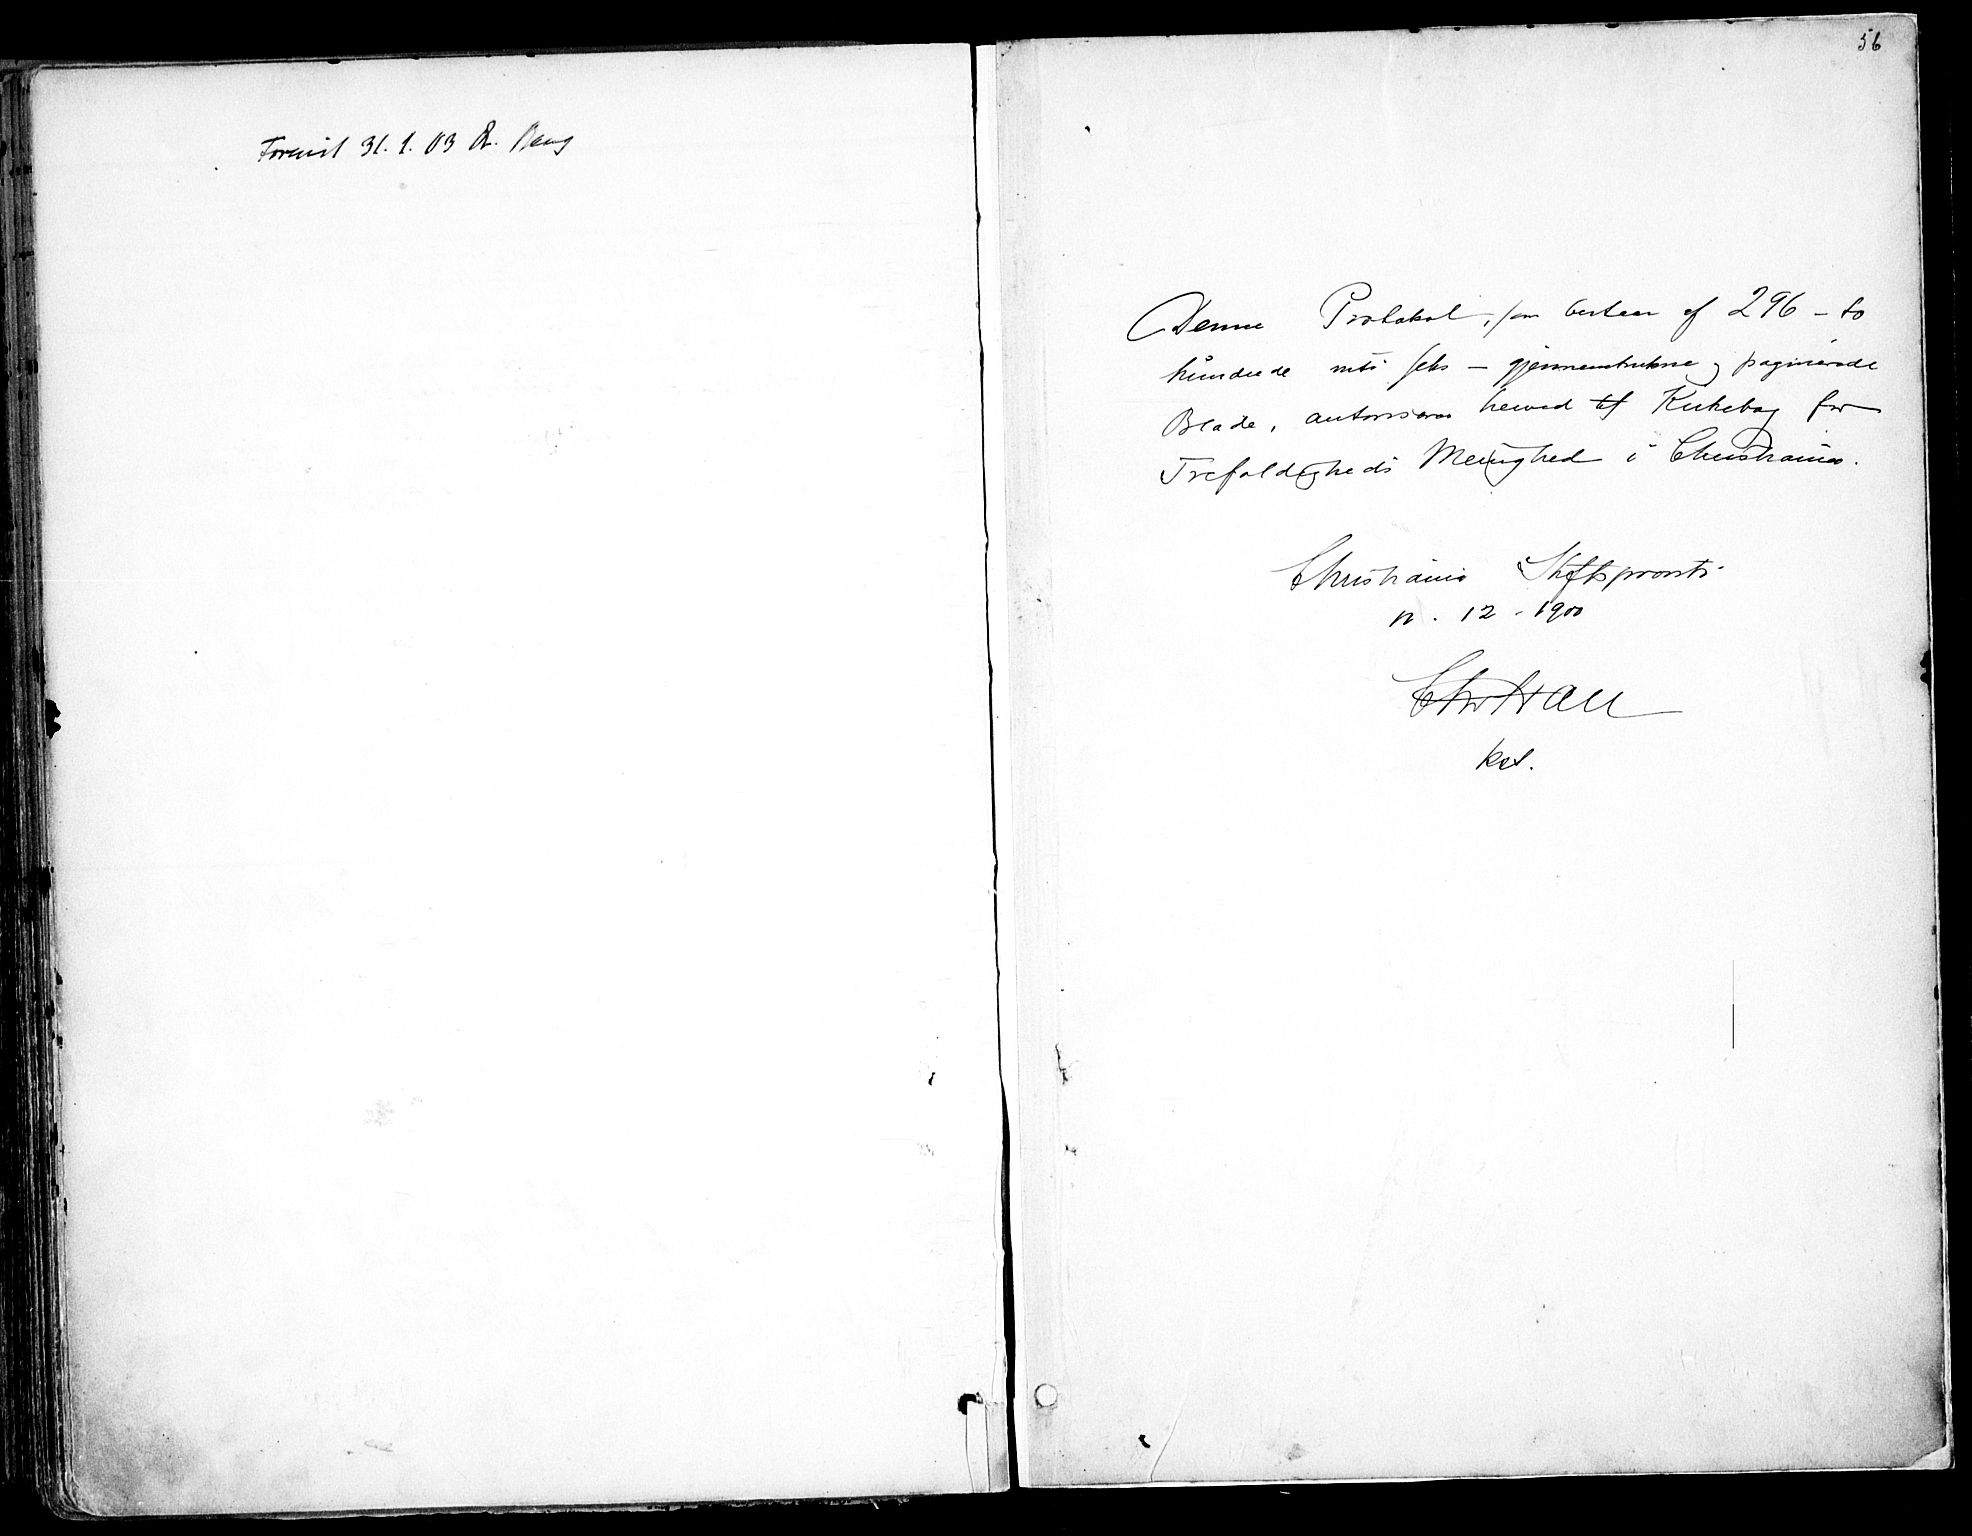 Forevist 31. 1. 03 A. Bang
56
Denne Protokol, som bestaar af 296 – to
hundrede nitti seks – gjennemtrukne og paginerede
Blade, autoriseres herved til Kirkebog for
Trefoldigheds Menighed i Christiania.
Christiania Stiftsprovsti
12 - 1900
Chr Hall
kst.